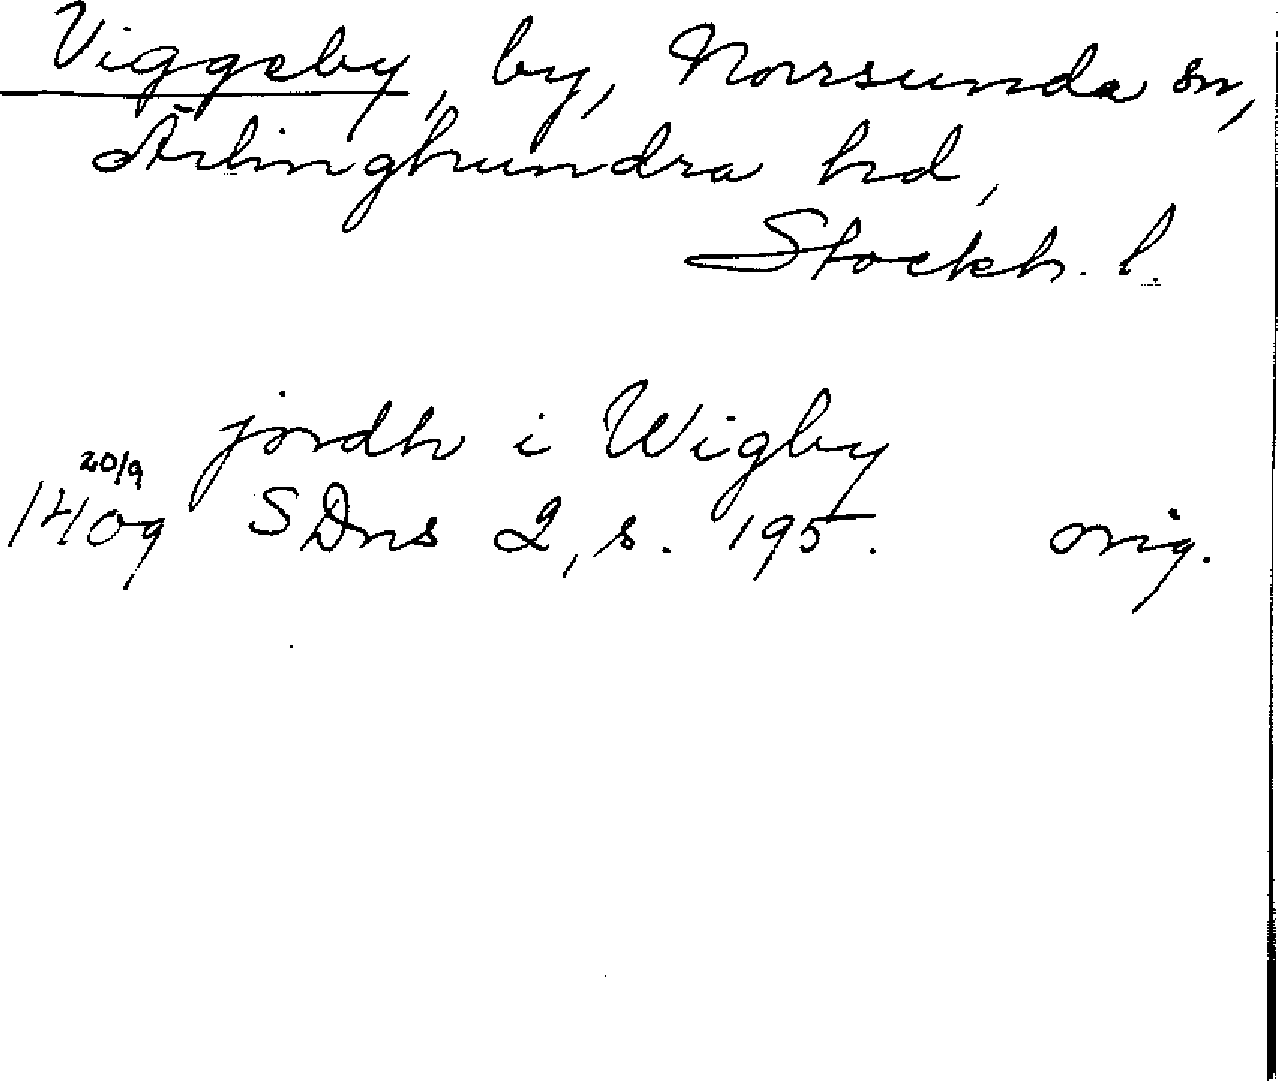 Viggeby, by, Norrsunda sn,
Ärlinghundra hd,
Stockh. l.
jordh i Wigby
20/9
1409 SDns 2, s. 195. orig.